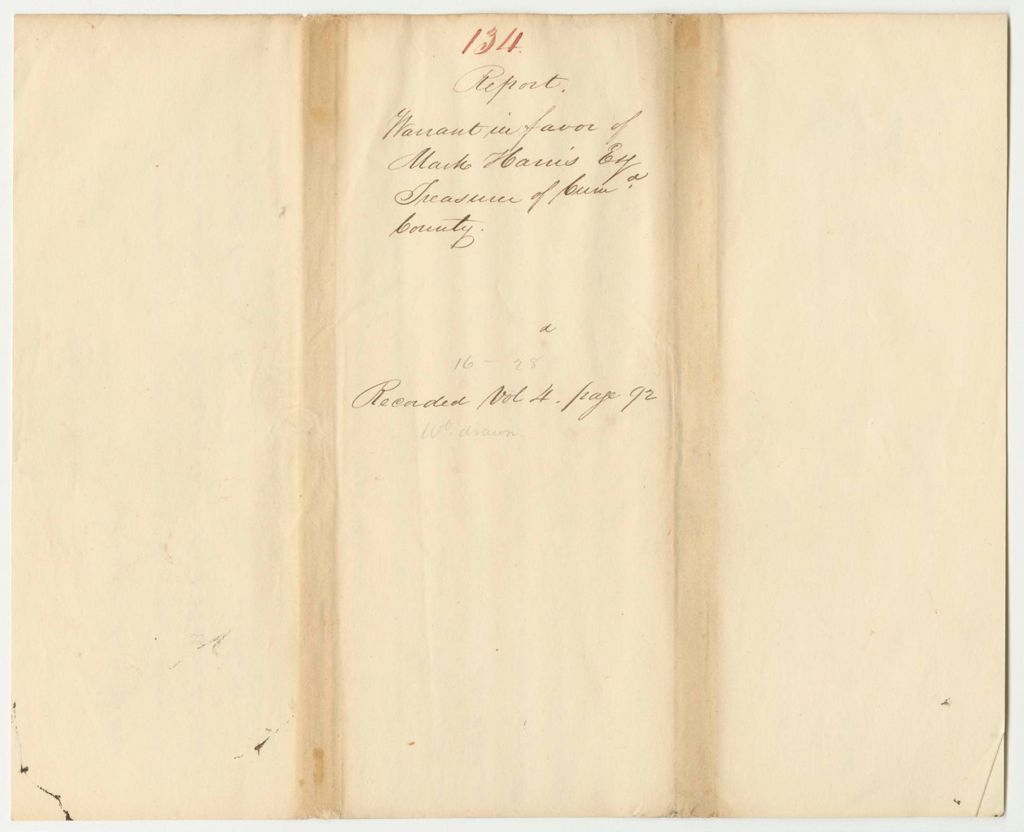 134.
Report.
Warrant in favor of
Mark Harris Esq
Treasurer of Cumd.
County.
d
16 — 28
Recorded Vol 4. page 92
Wt. drawn.